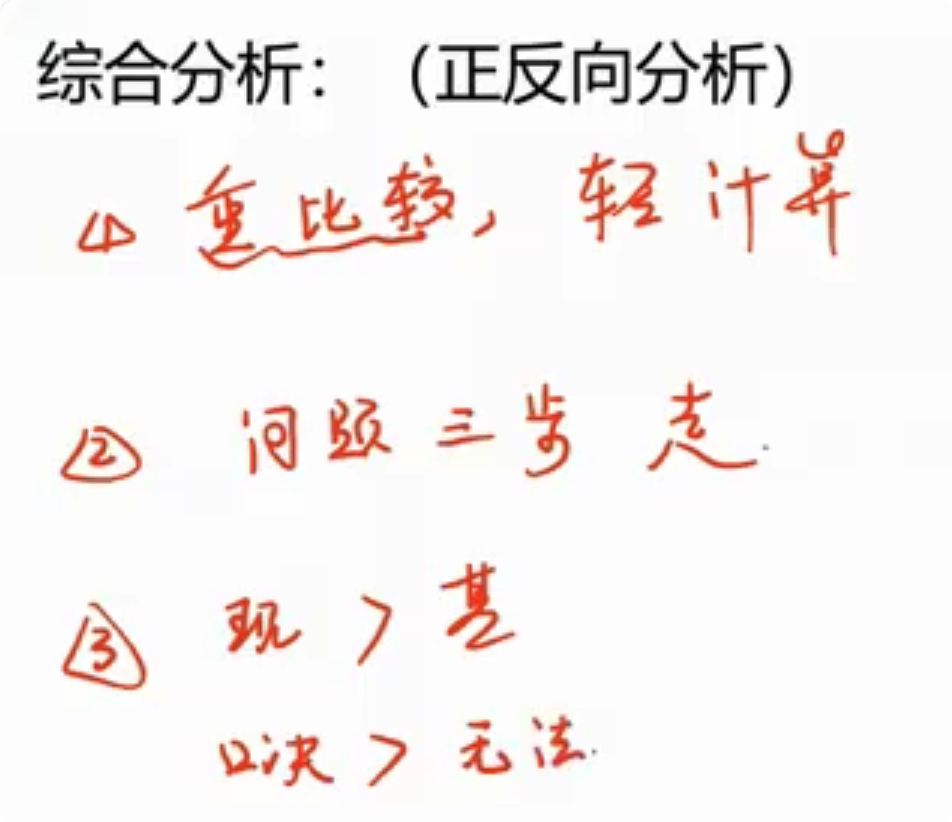 综合分析：（正反向分析）
① 重比较，轻计算
② 问题三步走.
③ 现 > 基
口决 > 无法.